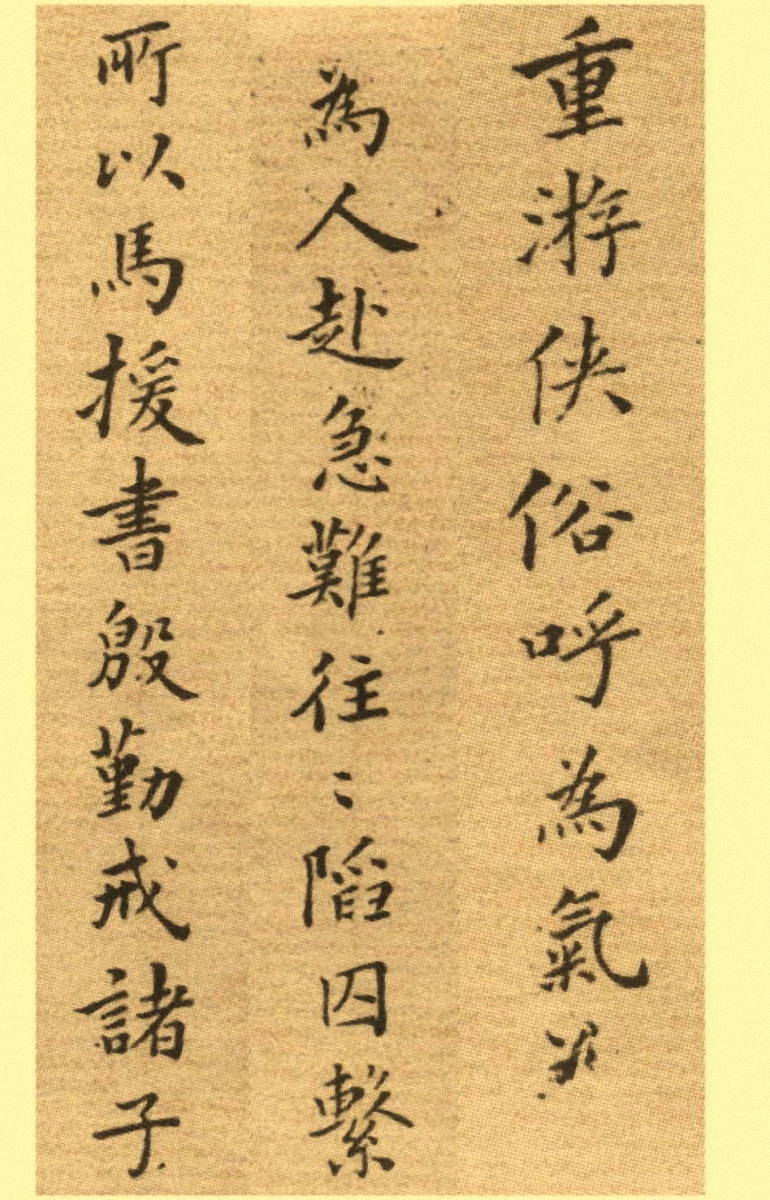 重游侠俗呼為氣
為人赴急難往〻陷囚繫
所以馬援書殷勤戒諸子